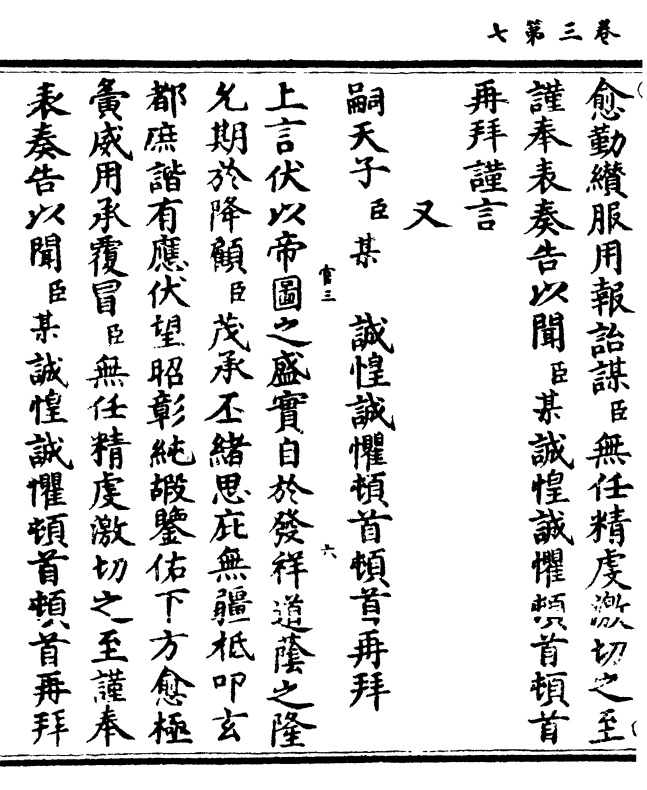 卷三第七
愈勤纘服用報詒謀臣無任精虔激切之至
謹奉表奏告以聞臣某誠惶誠懼頓首頓首
再拜謹言
又
嗣天子臣某 誠惶誠懼頓首頓首再拜
官三
六
上言伏以帝圖之盛實自於發祥道蔭之隆
允期於降顧臣茂承丕緒思庇無疆祗叩玄
都庶諧有應伏望昭彰純嘏鑒佑下方愈極
賫威用承覆冒臣無任精虔激切之至謹奉
表奏告以聞臣某誠惶誠懼頓首頓首再拜